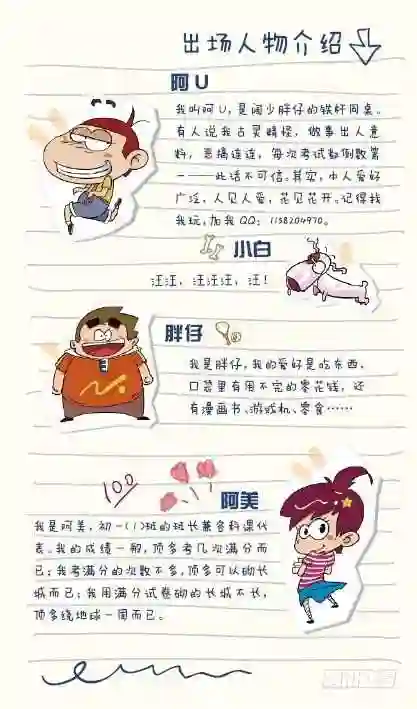 出场人物介绍
阿U
我叫阿U,是阔少胖仔的铁杆同桌。
有人说我古灵精怪,做事出人意
料,恶搞连连,每次考试都倒数第
一——此话不可信。其实,本人爱好
广泛,人见人爱,花见花开。记得找
我玩,加我QQ:1138204970。
小白
汪汪,汪汪汪,汪!
胖仔
我是胖仔,我的爱好是吃东西,
口袋里有用不完的零花钱,还
有漫画书、游戏机、零食……
100
阿美
我是阿美,初一(1)班的班长兼各科课代
表。我的成绩一般,顶多考几次满分而
已;我考满分的次数不多,顶多可以砌长
城而已;我用满分试卷砌的长城不长,
顶多绕地球一周而已。